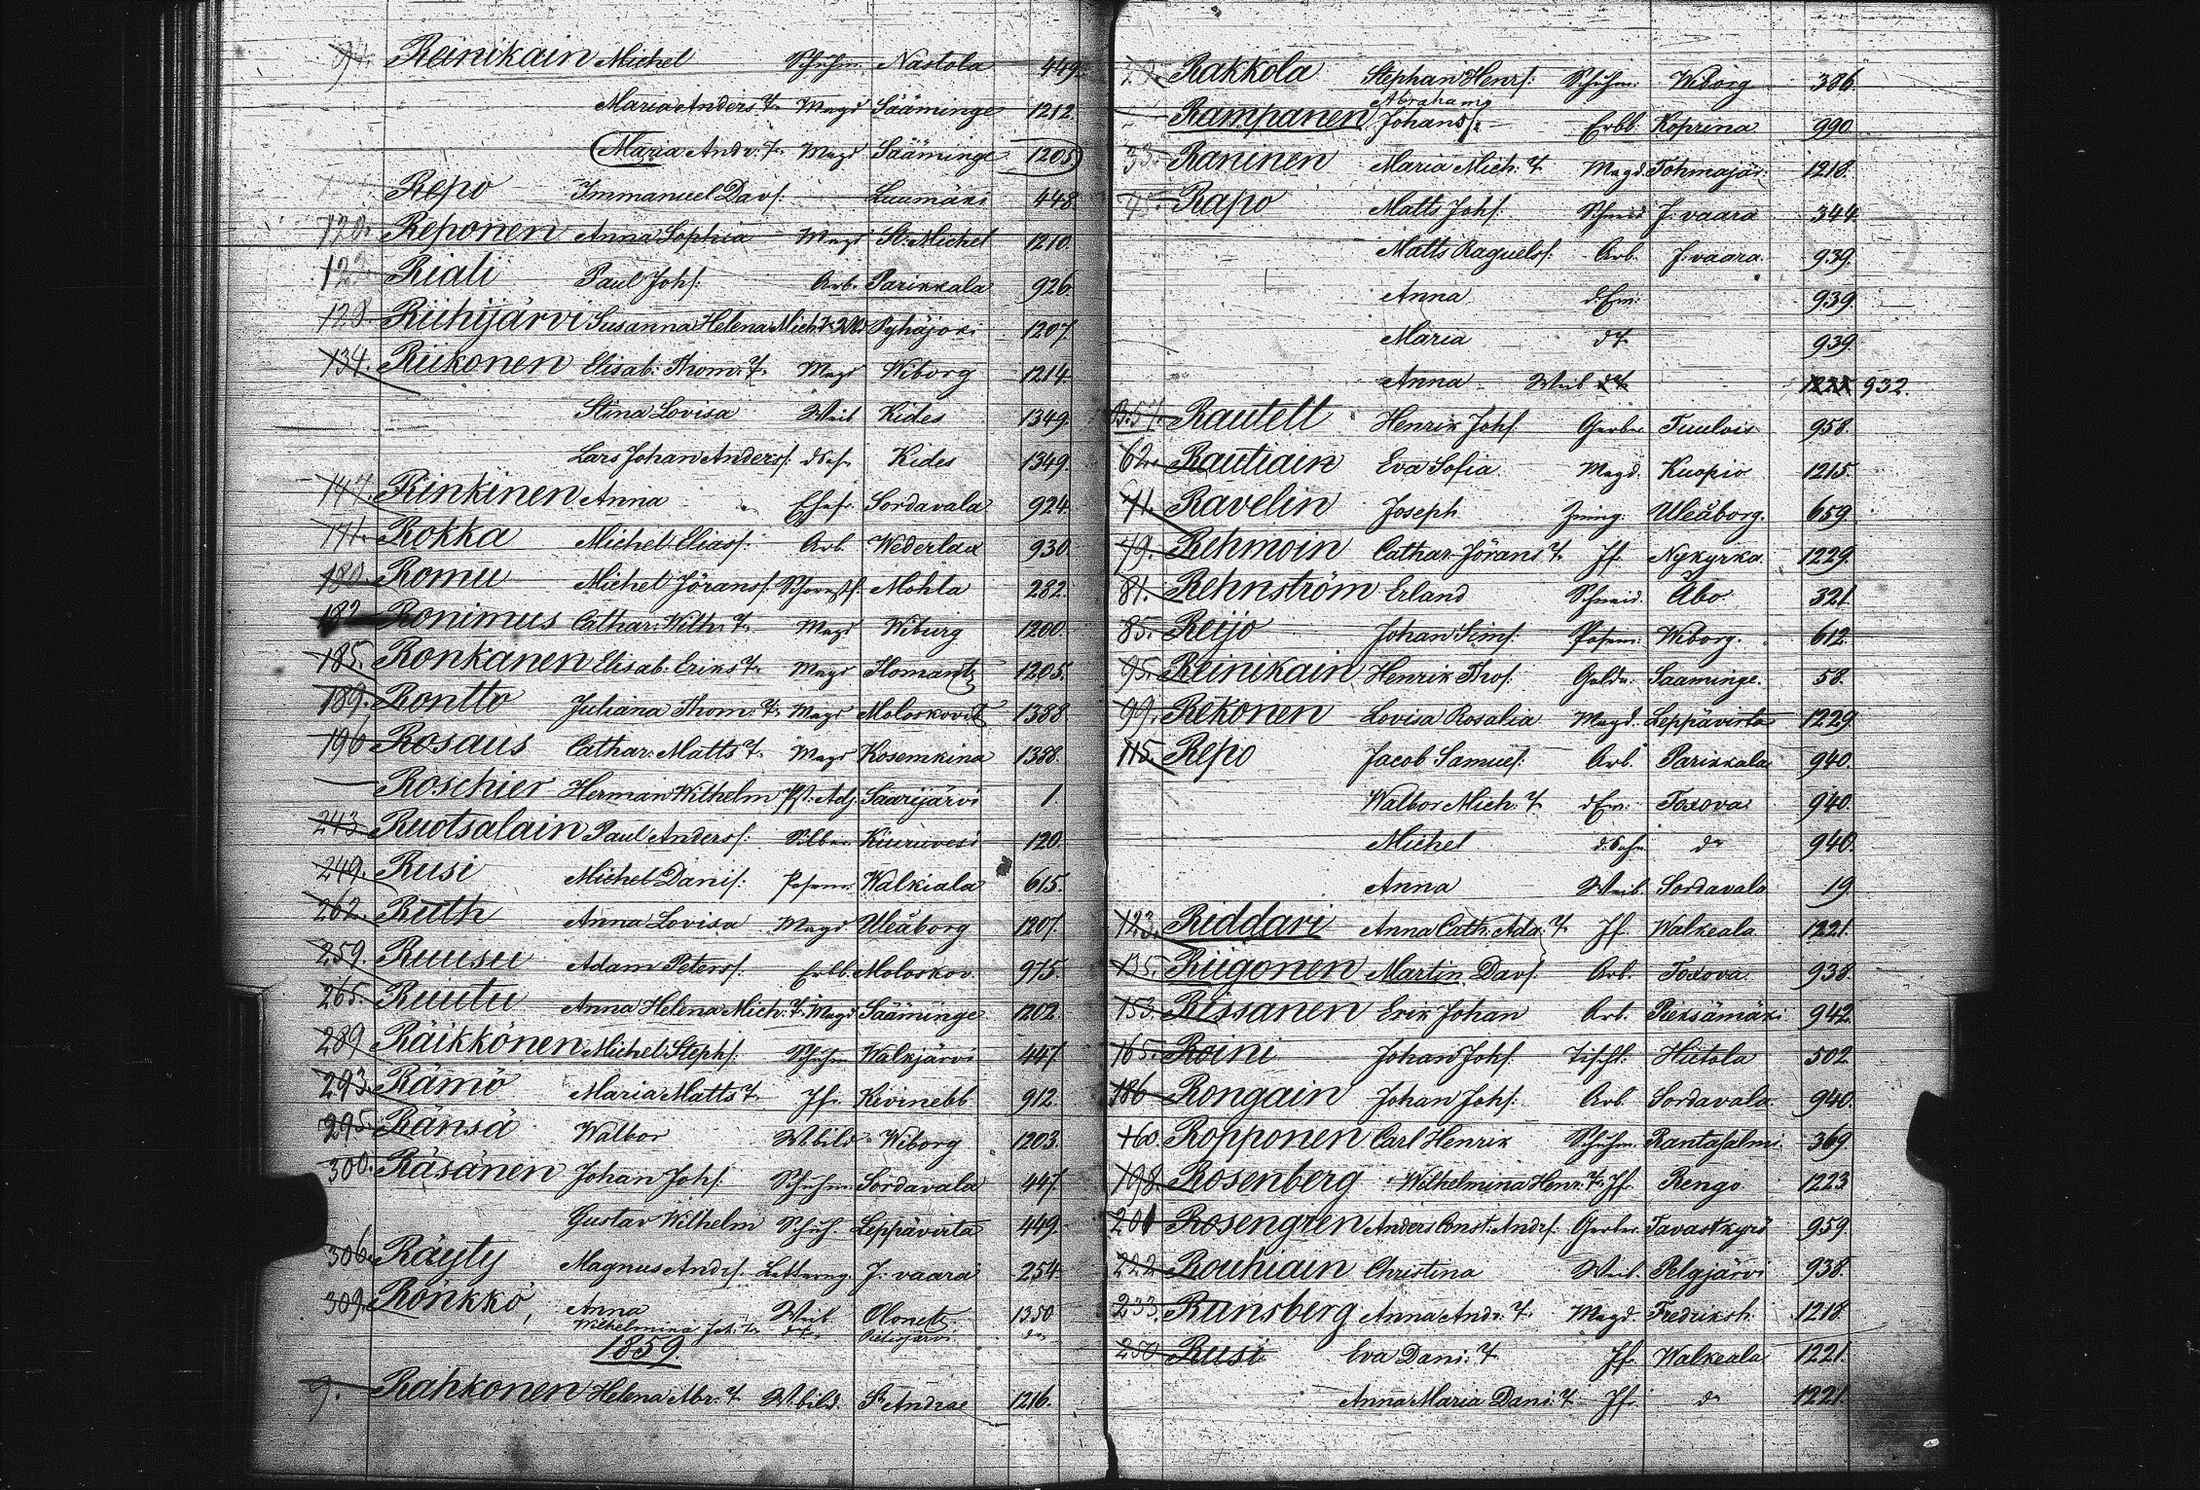 94. Reinikain Michel Schuhm. Nastola 449.
Maria Anders. T. Magd Sääminge 1212.
Maria Andr. T. Magd Sääminge 1205
Repo Immanuel Davs. Luumäki 448
120. Reponen Anna Sophia Magd St. Michel 1210.
122. Riali Paul Johs. Arb. Parikkala 926
128. Riihijärvi Susanna Helena Mich. T. Pyhäjoki 1207.
134. Riikonen Elisab. Thom. T. Magd Wiborg 1214
Stina Lovisa Weib Kides 1349.
Lars Johan Anderss. d. Sohn Kides 1349.
147. Rinkinen Anna Ehefr. Sordavala 924
171. Rokka Michel Eliass. Arb. Wederlax 930
180. Romu Michel Jöranss. Schornstf. Mohla 282.
182 Ronimus Cathar. Wilh. T. Magd Wiburg 1200.
185. Ronkanen Elisab. Eriks T. Magd Ilomantz 1205.
189. Rontto Juliana Thom. T. Magd Moloskovitz 1388
196 Rosaus Cathar. Matts T. Magd Kosemkina 1388.
— Roschier Herman Wilhelm Pst. Adj. Saarijärvi 1.
243 Ruotsalain Paul Anderss. Silber Kiuruvesi 120.
249. Rusi Michel Danis. Posam. Walkiala 615.
262. Ruth Anna Lovisa Magd Uleåborg 1207.
259. Ruusu Adam Peterss. Erbb. Moloskov. 975.
265. Ruutu Anna Helena Mich. T. Magd Sääminge 1202.
289 Räikkönen Michel Stephs. Schuhm Walkjärvi 447.
293. Rämö Maria Matts T. Jfr. Kivinebb 912.
295. Ränsä Walbor Wbild. Wiborg 1203.
300. Räsänen Johan Johs. Schuhm. Sordavala 447.
Gustav Wilhelm Schuh. Leppävirta 449.
306. Räyty Magnus Andrs. J. vaara 254.
309. Rönkkö, Anna Weib Olonetz 1350
Wilhelmina Joh. T. Pielisjärvi do
1859.
9. Rahkonen Helena Abr. T. Wbild. St. Andrae 1216.
29. Rakkola Stephan Henrs. Schuhm. Wiborg 386.
Abrahams
Rampanen Johanss. — Erbb. Koprina 990.
33. Raninen Maria Mich. T. Magd. Tohmajär. 1218.
45. Rapo Matts Johs. Schneid J. vaara 344.
Matts Raguelss. Arb. J. vaara. 939.
Anna d. Em. 939.
Maria d. T. 939.
Anna — Weib 932.
57. Rautell Henrik Johs. Gerber Tuulois 958.
62. Rautiain Eva Sofia Magd. Kuopio 1215.
71. Ravelin Joseph Uleåborg. 659.
79. Rehmoin Cathar. Jörans T. Jf. Nykyrka. 1229.
81. Rehnström Erland Schneid. Åbo. 321.
85. Reijo Johan Sims. Posam. Wiborg. 612.
95. Reinikain Henrik Thos. Golda. Saaminge. 58.
99. Rekonen Lovisa Rosalia Magd. Leppävirta 1229.
115. Repo Jacob Samuels. Arb. Parikkala 940.
Walbor Mich. T. d. Em. Toxova 940.
Michel d. Sohn do 940.
Anna Weib. Sordavala 19.
123. Riddari Anna Cath. Ada. T. Jf. Walkeala 1221.
135. Riigonen Martin Davs. Arb. Toxova. 938.
153. Rissanen Erik Johan Arb. Pieksämäki 942.
165. Roini Johan Johs. Tischl. Hiitola 502.
186 Rongain Johan Johs. Arb. Sordavala 940.
160. Ropponen Carl Henrik Schuhm. Rantasalmi 369.
198. Rosenberg Wilhelmina Henr. T. Jf. Rengo 1223
201 Rosengren Anders Const. Andrs. Gerber Tavastkyrö 959.
222 Rouhiain Christina Weib. Pelgjärvi 938.
233. Runsberg Anna Andr. T. Magd. Fredriksh. 1218.
250 Rusi Eva Dani. T. Jf. Walkeala 1221.
Anna Maria Dani. T. Jf. do 1221.